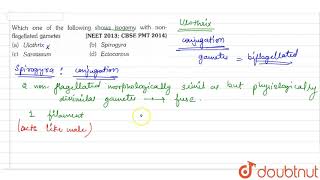 Which one of the following shows isogamy with non-flagellated gametes
[NEET 2013; CBSE PMT 2014]
(a) Ulothrix x (b) Spirogyra
(c) Sargassum (d) Ectocarpus
Ulothrix
conjugation
gametes = biflagellated
Spirogyra : conjugation
2 non-flagellated morphologically similar but physiologically
dissimilar gametes → fuse.
1 filament
(acts like male)
doubtnut